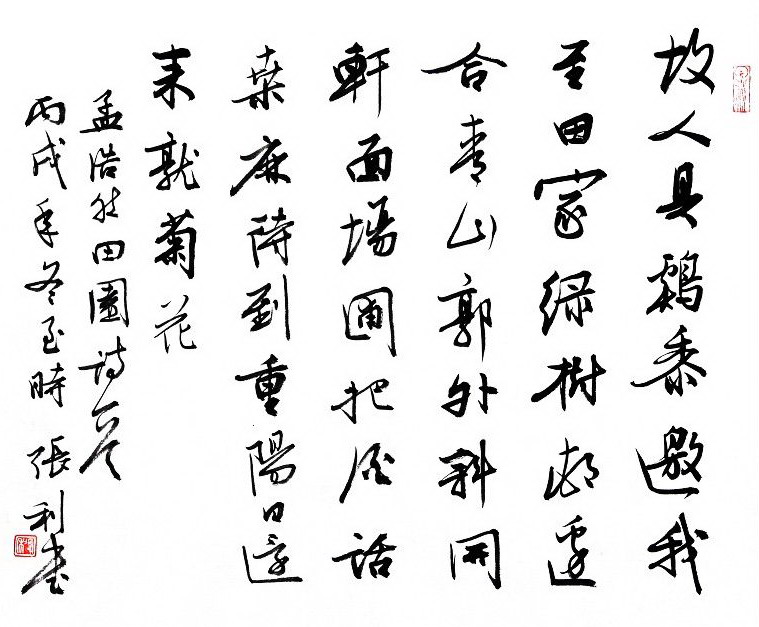 故人具鷄黍邀我
至田家綠樹邨邊
合青山郭外斜開
軒面場圃把酒話
桑麻待到重陽日還
来就菊花
孟浩然田園詩
丙戌年冬至時張利書